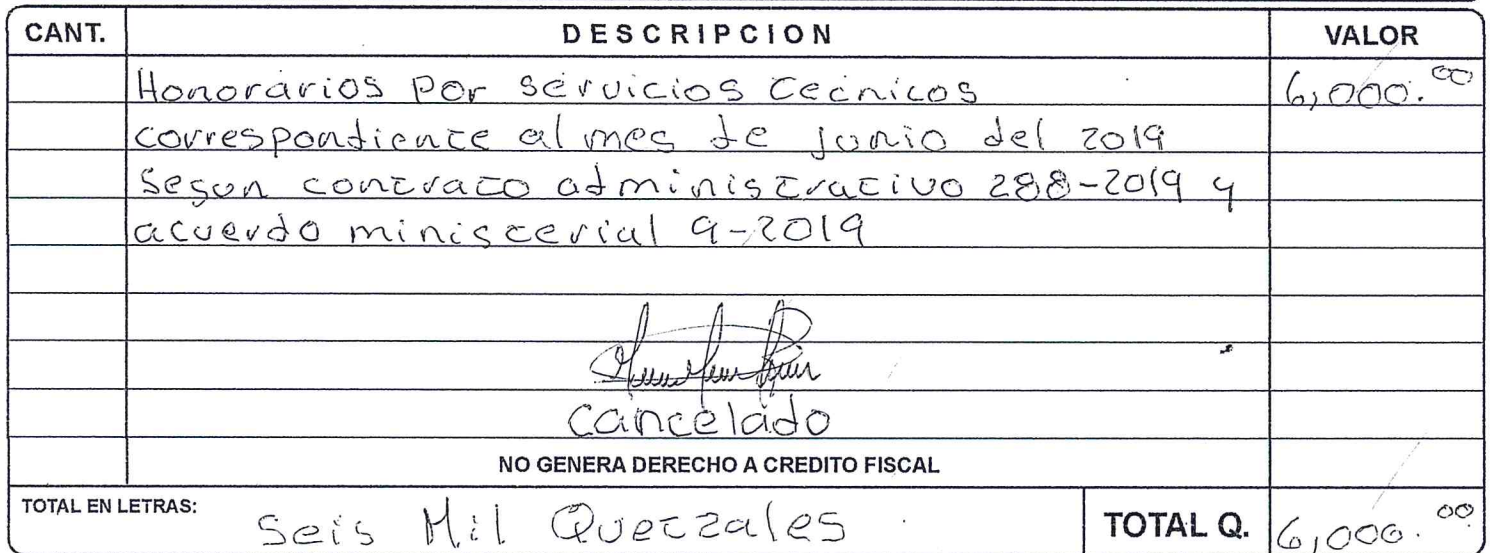 CANT. DESCRIPCION VALOR
Honorarios por servicios tecnicos 6,000.00
correspondiente al mes de junio del 2019
Segun contrato administrativo 288-2019 y
acuerdo ministerial 9-2019
cancelado
NO GENERA DERECHO A CREDITO FISCAL
TOTAL EN LETRAS: Seis Mil Quetzales TOTAL Q. 6,000.00